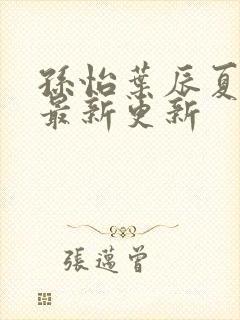 孫怡葉辰夏
最新更新
張邁曾